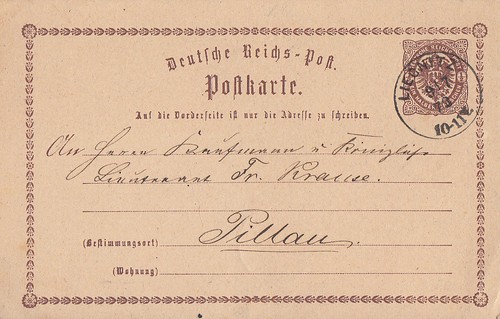 Deutsche Reichs-Post.
Postkarte.
Auf die Vorderseite ist nur die Adresse zu schreiben.
LIEGNITZ
10-11V.
An Herrn Kaufmann u Königlich
Lieutenant Fr. Krause.
(Bestimmungsort) Pillau.
(Wohnung)